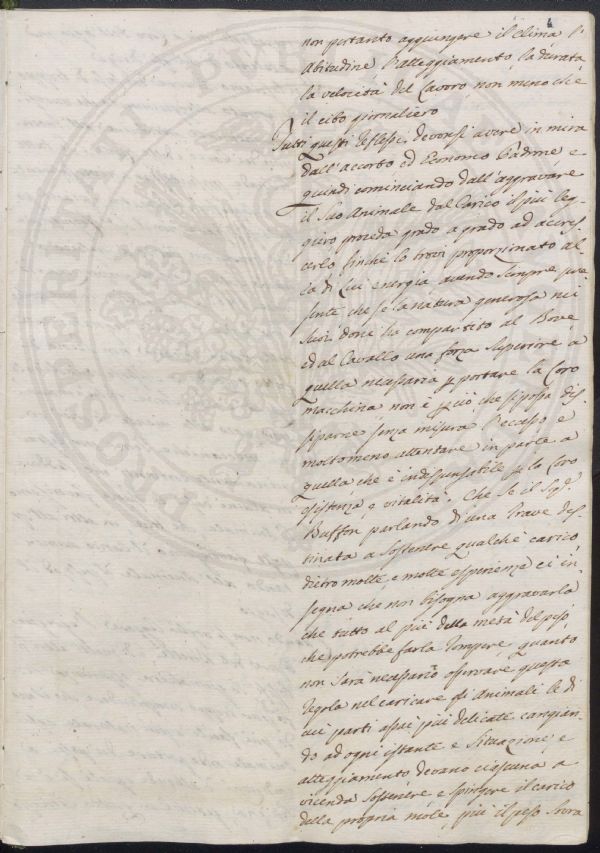 4
non pertanto aggiungere il clima l'
Abitudine l'atteggiamento la durata
la velocità del lavoro non meno che
il cibo giornaliero
Tutti questi riflessi devonsi avere in mira
dall'accorto ed Economo Padrone e
quindi cominciando dall'aggravare
il suo Animale dal Carico il più leg-
giero proceda grado a grado ad accres-
cerlo finchè lo trovi proporzionato al-
la di lui energia avendo sempre pre-
sente che se la natura generosa nei
suoi doni ha compartito al Bove
ed al Cavallo una forza superiore a
quella necessaria p portare la loro
macchina non è p ciò che si possa dis-
siparne senza misura l'eccesso e
moltomeno attentare in parte a
quella che è indispensabile p la loro
esistenza e vitalità. Che se il Sigr
Buffon parlando di una trave des-
tinata a sostenere qualche carico
dietro molte e molte esperienze ci in-
segna che non bisogna aggravarla
che tutto al più della metà del peso
che potrebbe farla rompere, quanto
non sarà necessario osservare questa
regola nel caricare gli Animali le di
cui parti assai più delicate cangian-
do ad ogni istante e situazione e
atteggiamento devano ciascuna a
vicenda sostenere e spingere il carico
della propria mole più il peso sovra
PROS ERIPIATI PUP